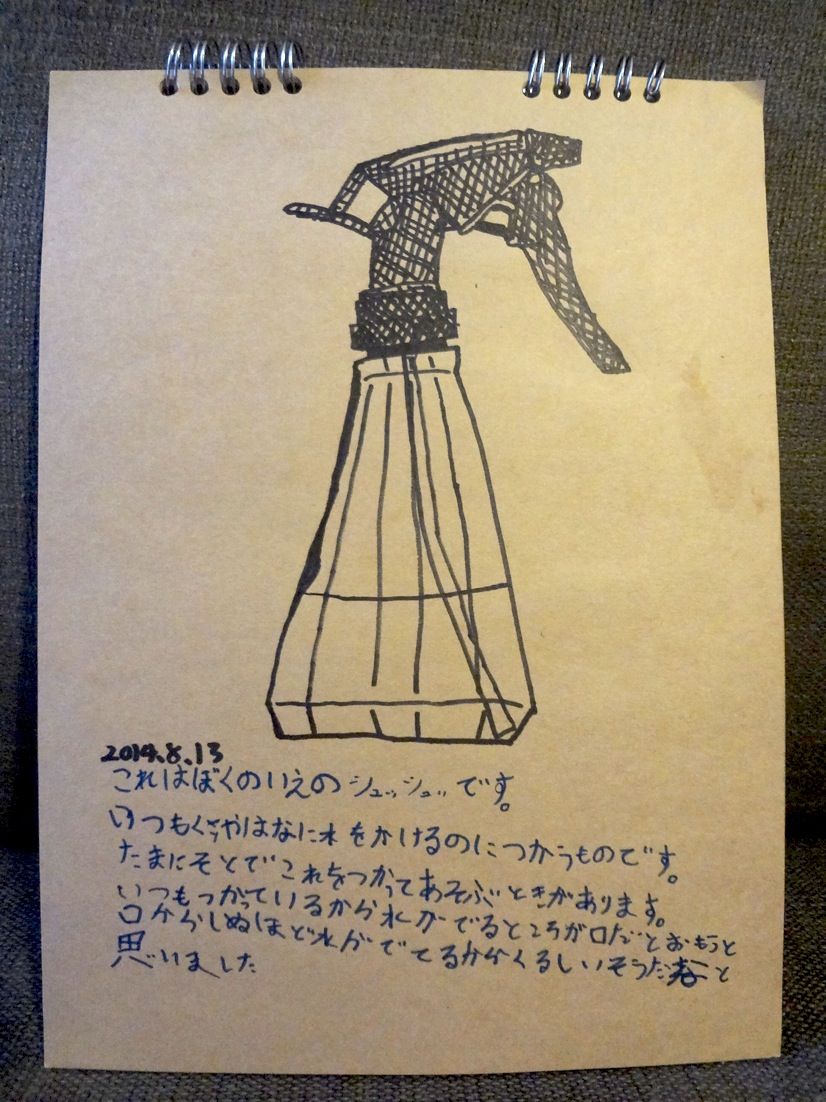 2014.8.13
これはぼくのいえのシュッシュッです。
いつもくさやはなに水をかけるのにつかうものです。
たまにそとでこれをつかってあそぶときがあります。
いつもつかっているから水がでるところが口だとおもうと
口からしぬほど水がでてるからくるしいそうだなと
思いました